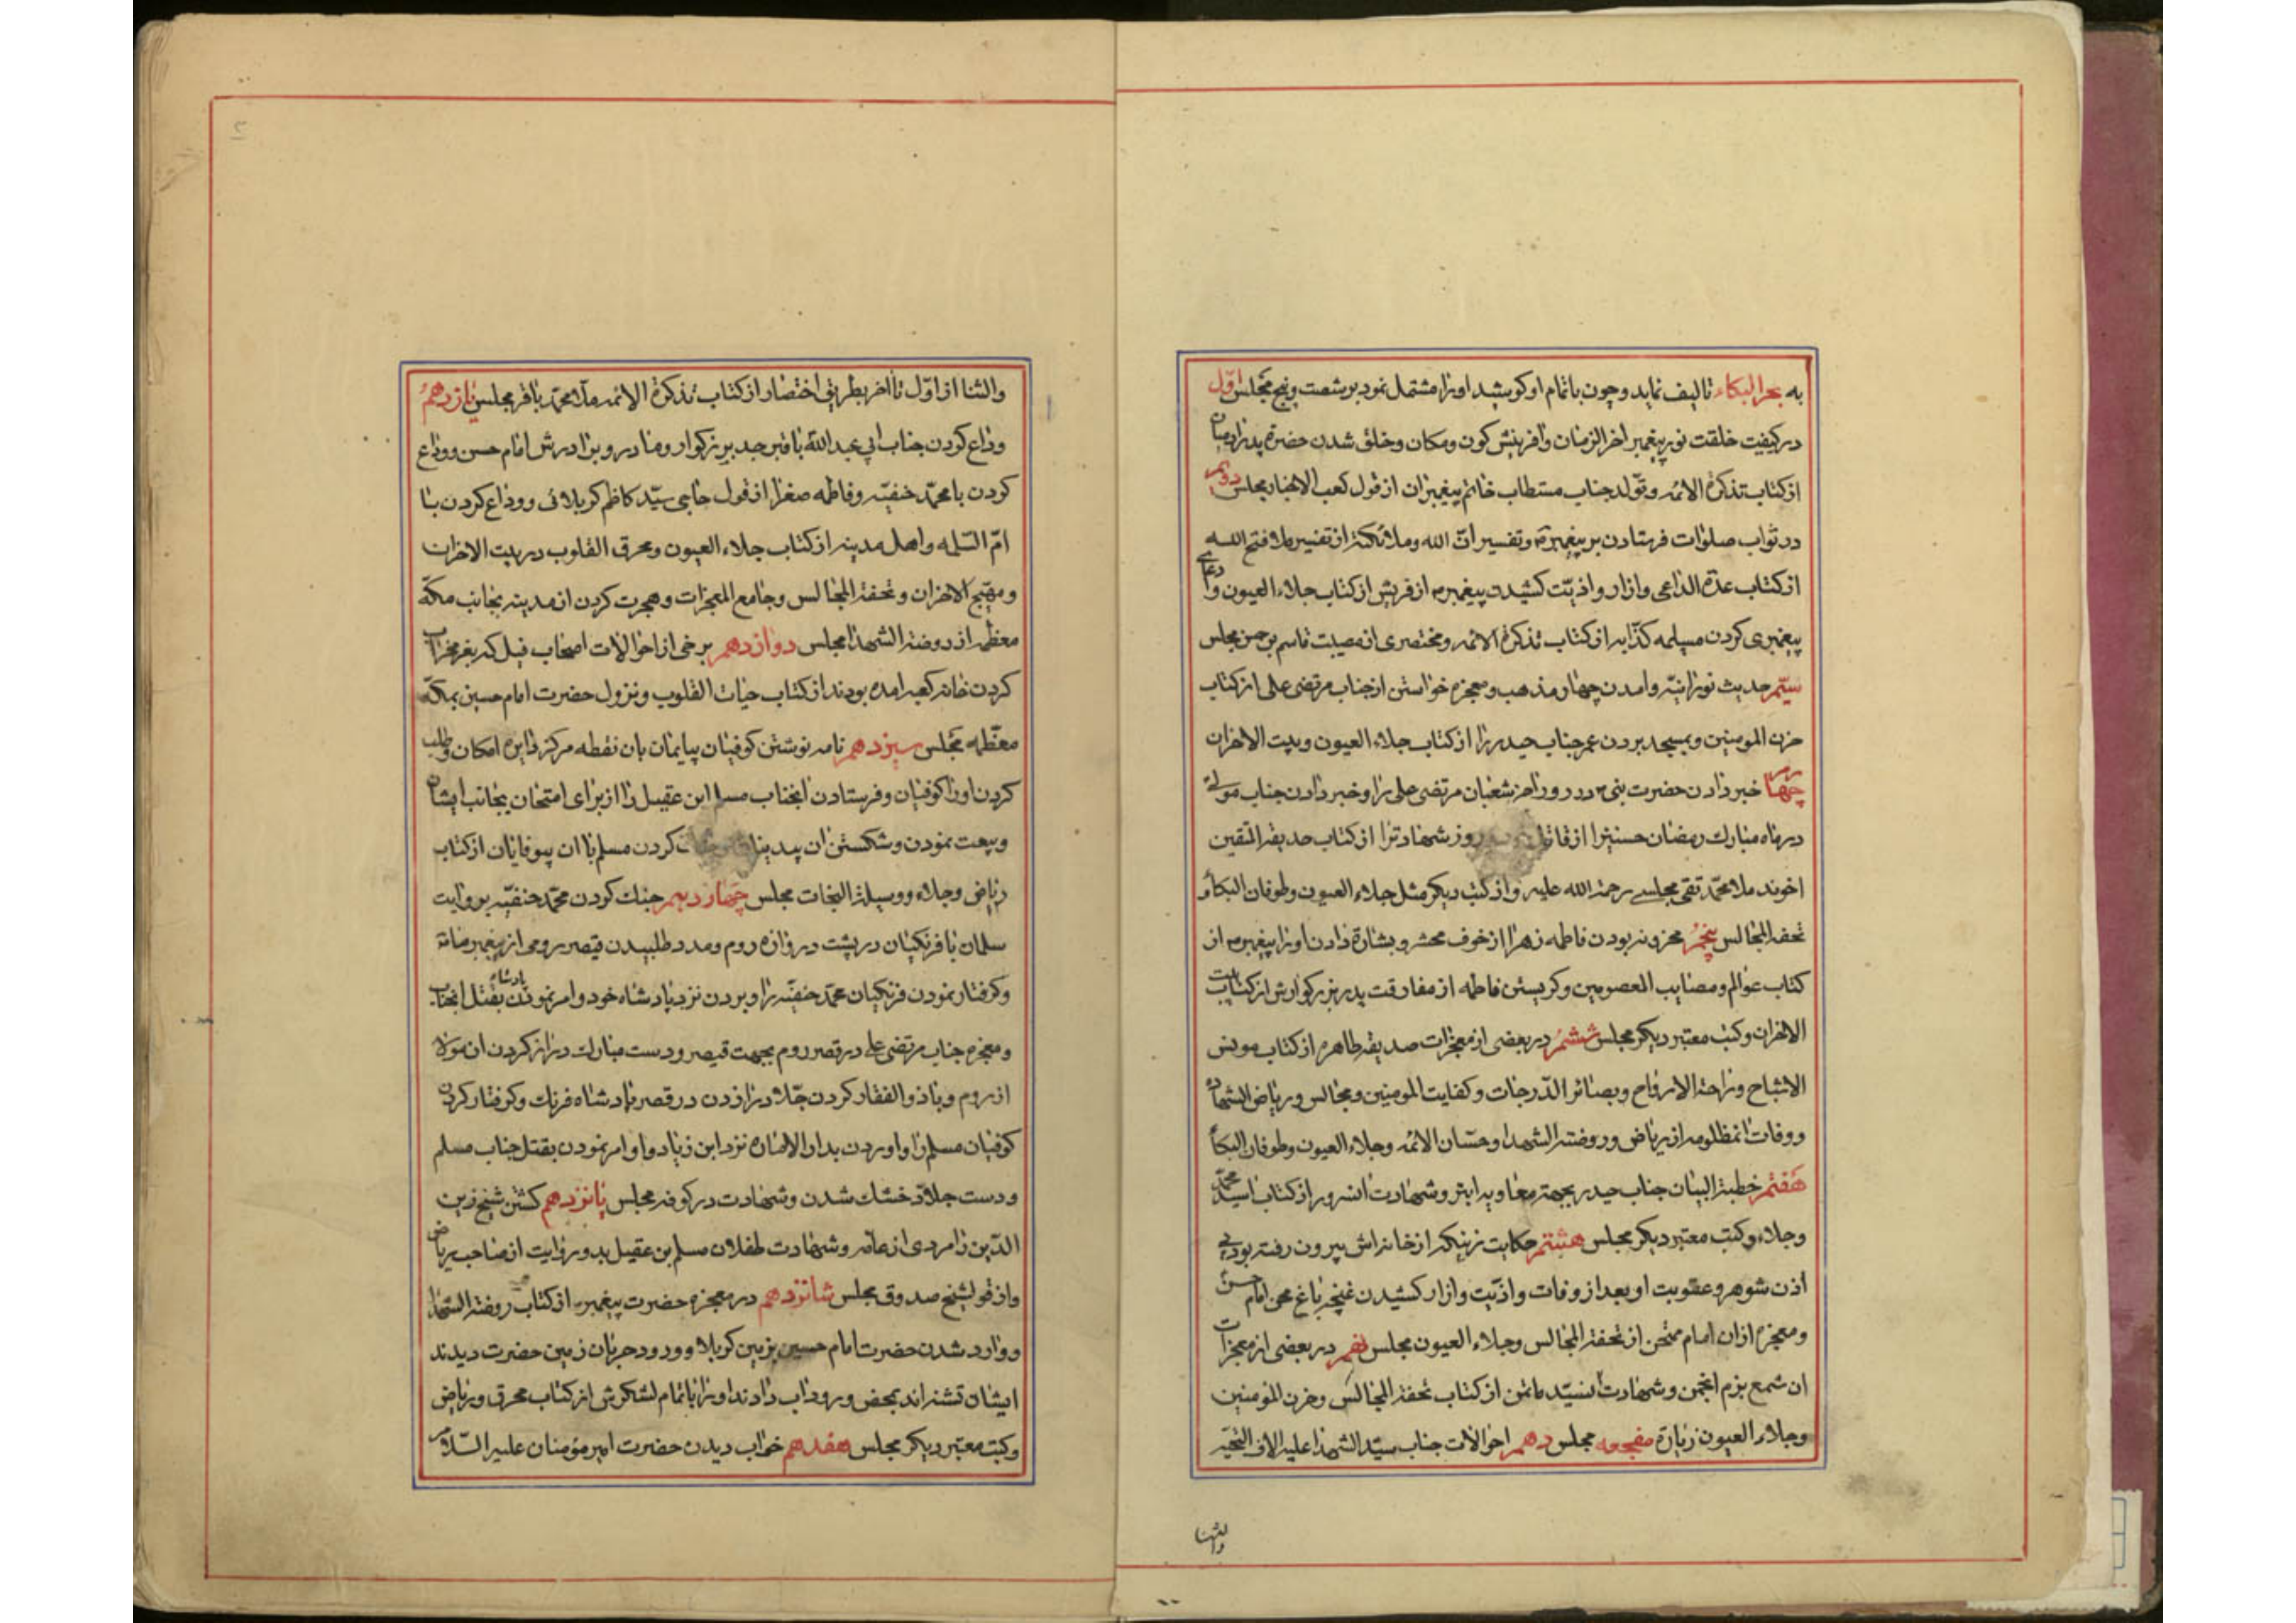 به بحر البکاء تالیف نماید و چون باتمام او کوشید اورا مشتمل نمود بر شصت و پنج مجلس اول
در کیفیت خلقت نور پیغمبر اخر الزمان وافرینش کون و مکان وخلق شدن حضرة پدر ادمیان
از کتاب تذکرة الائمه وتولد جناب مستطاب خاتم پیغمبران از قول کعب الاخبار مجلس دویم
در ثواب صلوات فرستادن بر پیغمبر ص وتفسیر انّ الله وملائکته از تفسیر ملا فتح الله
از کتاب عدة الداعی وازار واذیّت کشیدن پیغمبر ص از قریش از کتاب جلاء العیون وادعای
پیغمبری کردن مسیلمه کذّاب از کتاب تذکرة الائمه ومختصری از مصیبت قاسم بن حسن مجلس
سیّم حدیث نورانیّه وامدن چهار مذهب ومعجزه خواستن از جناب مرتضی علی از کتاب
حزن المومنین وبمسجد بردن عمر جناب حیدر را از کتاب جلاء العیون وبیت الاحزان
چهارم خبر دادن حضرت نبی ص در روز اخر شعبان مرتضی علی را وخبر دادن جناب مولی
در ماه مبارك رمضان حسنین را از روز شهادترا از کتاب حدیقة المتقین
اخوند ملا محمّد تقی مجلسی رحمة الله علیه واز کتب دیکر مثل جلاء العیون وطوفان البکاء و
تحفة المجالس پنجم محزونه بودن فاطمه زهرا از خوف محشر وبشارة دادن اورا پیغمبر ص از
کتاب عوالم ومصایب المعصومین وکریستن فاطمه از مفارقت پدر بزرکوارش از کتاب بیت
الاحزان وکتب معتبر دیکر مجلس ششم در بعضی از معجزات صدیقه طاهره از کتاب مونس
الاشباح وراحة الارواح وبصائر الدّرجات وکفایت المومنین ومجالس وریاض الشهاده
ووفات انمظلومه از ریاض وروضة الشهدا وحسّان الائمه وجلاء العیون وطوفان البکاء
هفتم خطبة البیان جناب حیدر بجهة معاویه ابتر وشهادت انسرور از کتاب اسید محمّد
وجلاء وکتب معتبر دیکر مجلس هشتم حکایت زنیکه از خانه اش بیرون رفته بود بی
اذن شوهر وعقوبت او بعد از وفات واذیّت وازار کشیدن غنچه باغ محن امام حسن
ومعجزه ازان امام ممتحن از تحفة المجالس وجلاء العیون مجلس نهم در بعضی از معجزات
ان شمع بزم انجمن وشهادت انسیّد مؤتمن از کتاب تحفة المجالس وحزن المومنین
وجلاء العیون زیارة مفجعه مجلس دهم احوالات جناب سیّد الشهدا علیه الاف التحیّه
والثنا
والثنا از اوّل تا اخر بطریق اختصار از کتاب تذکرة الائمه ملا محمّد باقر مجلس یازدهم
وداع کردن جناب ابی عبد الله با قبر جد بزرکوار ومادر وبرادرش امام حسن ووداع
کردن با محمّد حنفیّه وفاطمه صغرا از قول حاجی سیّد کاظم کربلائی ووداع کردن با
امّ السّلمه واهل مدینه از کتاب جلاء العیون ومحرق القلوب در بیت الاحزان
ومهیّج الاحزان وتحفة المجالس وجامع المعجزات وهجرت کردن از مدینه بجانب مکّه
معظمه از روضة الشهدا مجلس دوازدهم برخی از احوالات اصحاب فیل که بعزم خراب
کردن خانه کعبه امده بودند از کتاب حیات القلوب ونزول حضرت امام حسین بمکّه
معظّمه مجلس سیزدهم نامه نوشتن کوفیان بیایمان بان نقطه مرکز دایره امکان وطلب
کردن اورا کوفیان وفرستادن انجناب مسلم ابن عقیل را از برای امتحان بجانب ایشان
وبیعت نمودن وشکستن ان بیدینان کردن مسلم با ان بیوفایان از کتاب
ریاض وجلاء ووسیلة النجات مجلس چهاردهم جنك کردن محمّد حنفیّه بروایت
سلمان با فرنکیان در پشت دروازه روم ومدد طلبیدن قیصر رومی از پیغمبر زمانه
وکرفتار نمودن فرنکیان محمّد حنفیّه را وبردن نزد پادشاه خود وامر نمودن پادشاه بقتل انجناب
ومعجزه جناب مرتضی علی در قصر روم بجهت قیصر ودست مبارك دراز کردن ان مولا
از روم وبا ذو الفقار کردن جلاد را زدن در قصر پادشاه فرنك وکرفتار کردن
کوفیان مسلم را واوردن بدار الاماره نزد ابن زیاد واو امر نمودن بقتل جناب مسلم
ودست جلاّد خشك شدن وشهادت در کوفه مجلس پانزدهم کشتن شیخ زین
الدّین را مردی از عامّه وشهادت طفلان مسلم بن عقیل بدو روایت از صاحب ریاض
واز قول شیخ صدوق مجلس شانزدهم در معجزه حضرت پیغمبر ص از کتاب روضة الشهدا
ووارد شدن حضرت امام حسین بزمین کربلا وورود حر بان زمین حضرت دیدند
ایشان تشنه اند بمحض ورود اب دادند اورا باتمام لشکرش از کتاب محرق وریاض
وکتب معتبر دیکر مجلس هفدهم خواب دیدن حضرت امیر مؤمنان علیه السّلام